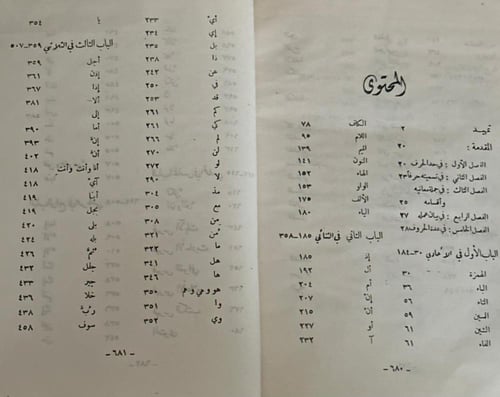 المحتوى
تمهيد ٢
المقدمة : ٢٠
الفصل الأول : في حد الحرف ٢٠
الفصل الثاني : في تسميته حرفا ٢٣
الفصل الثالث : في جملة معانيه
وأقسامه ٢٥
الفصل الرابع : في بيان عمله ٢٧
الفصل الخامس : في عدة الحروف ٢٨
الباب الأول في الأحادي ٣٠-١٨٤
الهمزة ٣٠
الباء ٣٦
التاء ٥٦
السين ٥٩
الشين ٦١
الفاء ٦١
الكاف ٧٨
اللام ٩٥
الميم ١٣٩
النون ١٤١
الهاء ١٥٢
الواو ١٥٣
الألف ١٧٥
الياء ١٨٠
الباب الثاني في الثنائي ١٨٥-٣٥٨
إذ ١٨٥
أل ١٩٢
أم ٢٠٤
إن ٢٠٧
أن ٢١٥
أو ٢٢٧
آ ٢٣٢
- ٦٨٠ -
أي ٢٣٣
إي ٢٣٤
بل ٢٣٥
ذا ٢٣٨
عن ٢٤٢
في ٢٥٠
قد ٢٥٣
كم ٢٦١
كي ٢٦١
لم ٢٦٦
لن ٢٧٠
لو ٢٧٢
لا ٢٩٠
مذ ٣٠٤
مع ٣٠٥
من ٣٠٨
من ٣٢١
ما ٣٢٢
هل ٣٤١
ها ٣٤٦
هو وهي وهم ٣٥٠
وا ٣٥١
وي ٣٥٢
يا ٣٥٤
الباب الثالث في الثلاثي ٣٥٩-٥٠٧
أجل ٣٥٩
إذن ٣٦١
إذا ٣٦٧
ألا ٣٨١
إلى ٣٨٥
أما ٣٩٠
إن ٣٩٣
أن ٤٠٢
أنا وأنت وأنت ٤١٨
آي ٤١٨
أيا ٤١٩
بجل ٤١٩
بلى ٤٢٠
بله ٤٢٤
ثم ٤٢٦
جلل ٤٣٢
جير ٤٣٣
خلا ٤٣٦
رب ٤٣٨
سوف ٤٥٨
- ٦٨١ -